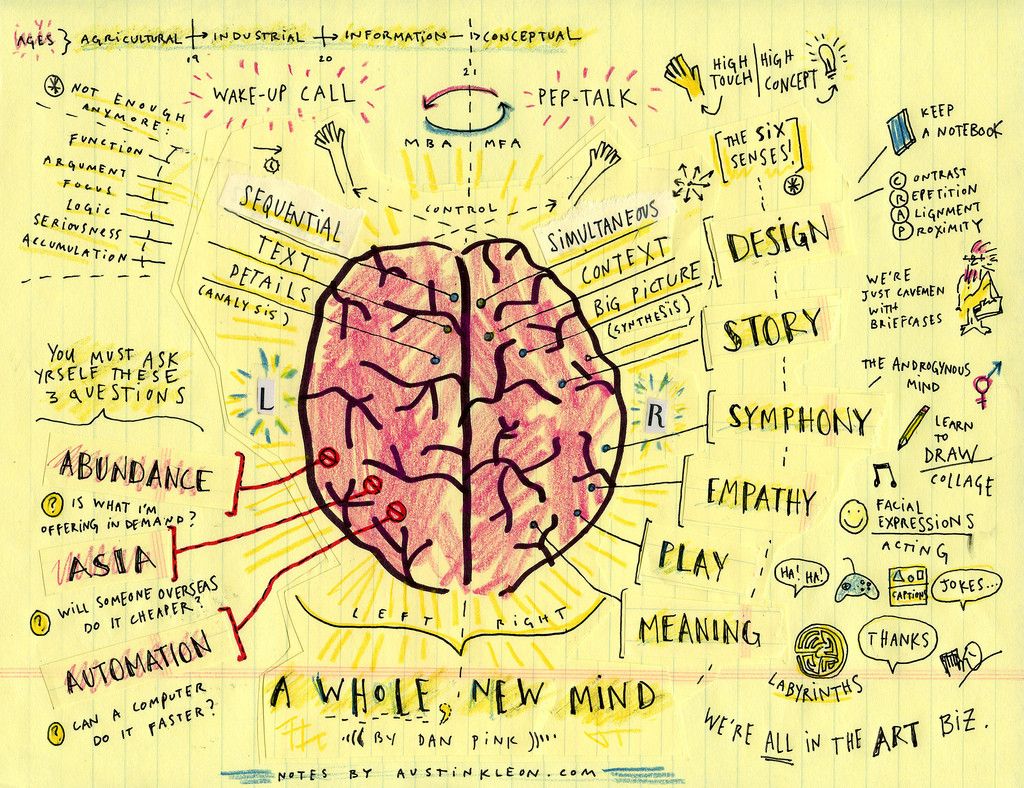 AGES } AGRICULTURAL → INDUSTRIAL → INFORMATION → CONCEPTUAL
19 20 21
WAKE-UP CALL
PEP-TALK
MBA MFA
HIGH TOUCH | HIGH CONCEPT
NOT ENOUGH
ANYMORE:
FUNCTION
ARGUMENT
FOCUS
LOGIC
SERIOUSNESS
ACCUMULATION
CONTROL
SEQUENTIAL
TEXT
DETAILS
(ANALYSIS)
SIMULTANEOUS
CONTEXT
BIG PICTURE
(SYNTHESIS)
L
R
LEFT RIGHT
YOU MUST ASK
YRSELF THESE
3 QUESTIONS
ABUNDANCE
? IS WHAT I'M
OFFERING IN DEMAND?
ASIA
? WILL SOMEONE OVERSEAS
DO IT CHEAPER?
AUTOMATION
? CAN A COMPUTER
DO IT FASTER?
[THE SIX
SENSES!]
DESIGN
STORY
SYMPHONY
EMPATHY
PLAY
MEANING
KEEP
A NOTEBOOK
CONTRAST
REPETITION
ALIGNMENT
PROXIMITY
WE'RE
JUST CAVEMEN
WITH
BRIEFCASES
THE ANDROGYNOUS
MIND
LEARN
TO
DRAW
COLLAGE
FACIAL
EXPRESSIONS
ACTING
HA! HA!
CAPTIONS
JOKES...
LABYRINTHS
THANKS
WE'RE ALL IN THE ART BIZ.
A WHOLE, NEW MIND
((( BY DAN PINK ))))
NOTES BY AUSTINKLEON.COM